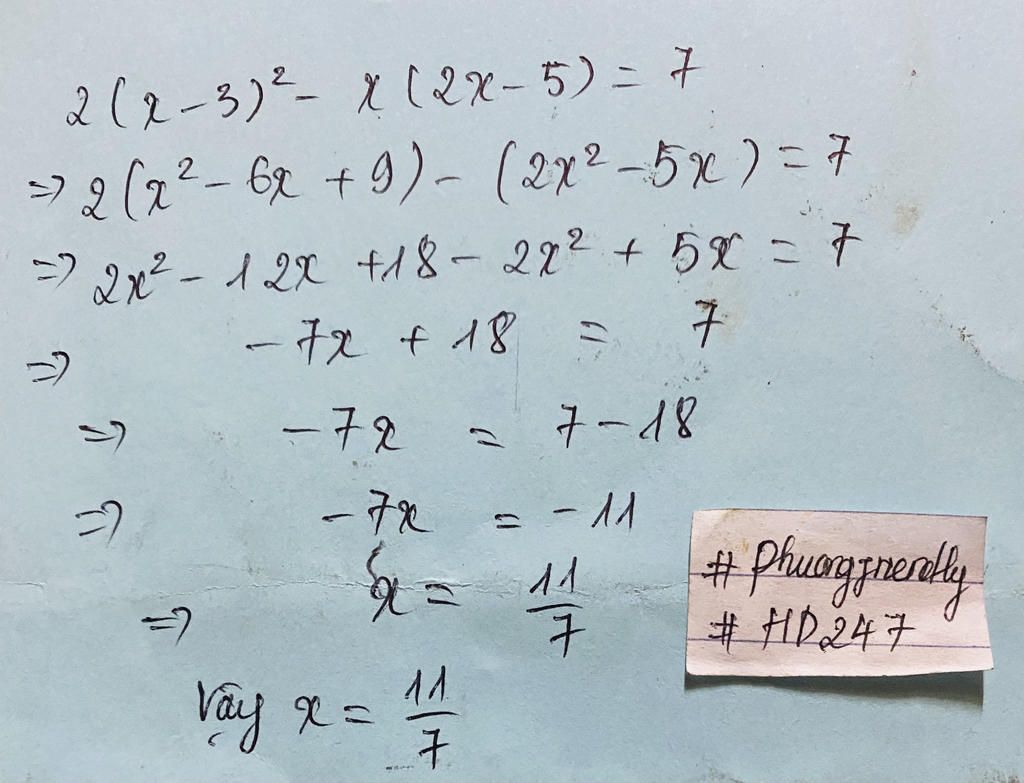 2(x-3)² - x(2x-5) = 7
=> 2(x² - 6x + 9) - (2x² - 5x) = 7
=> 2x² - 12x + 18 - 2x² + 5x = 7
=> -7x + 18 = 7
=> -7x = 7 - 18
=> -7x = -11
=> x = 11/7
Vậy x = 11/7
# HD247